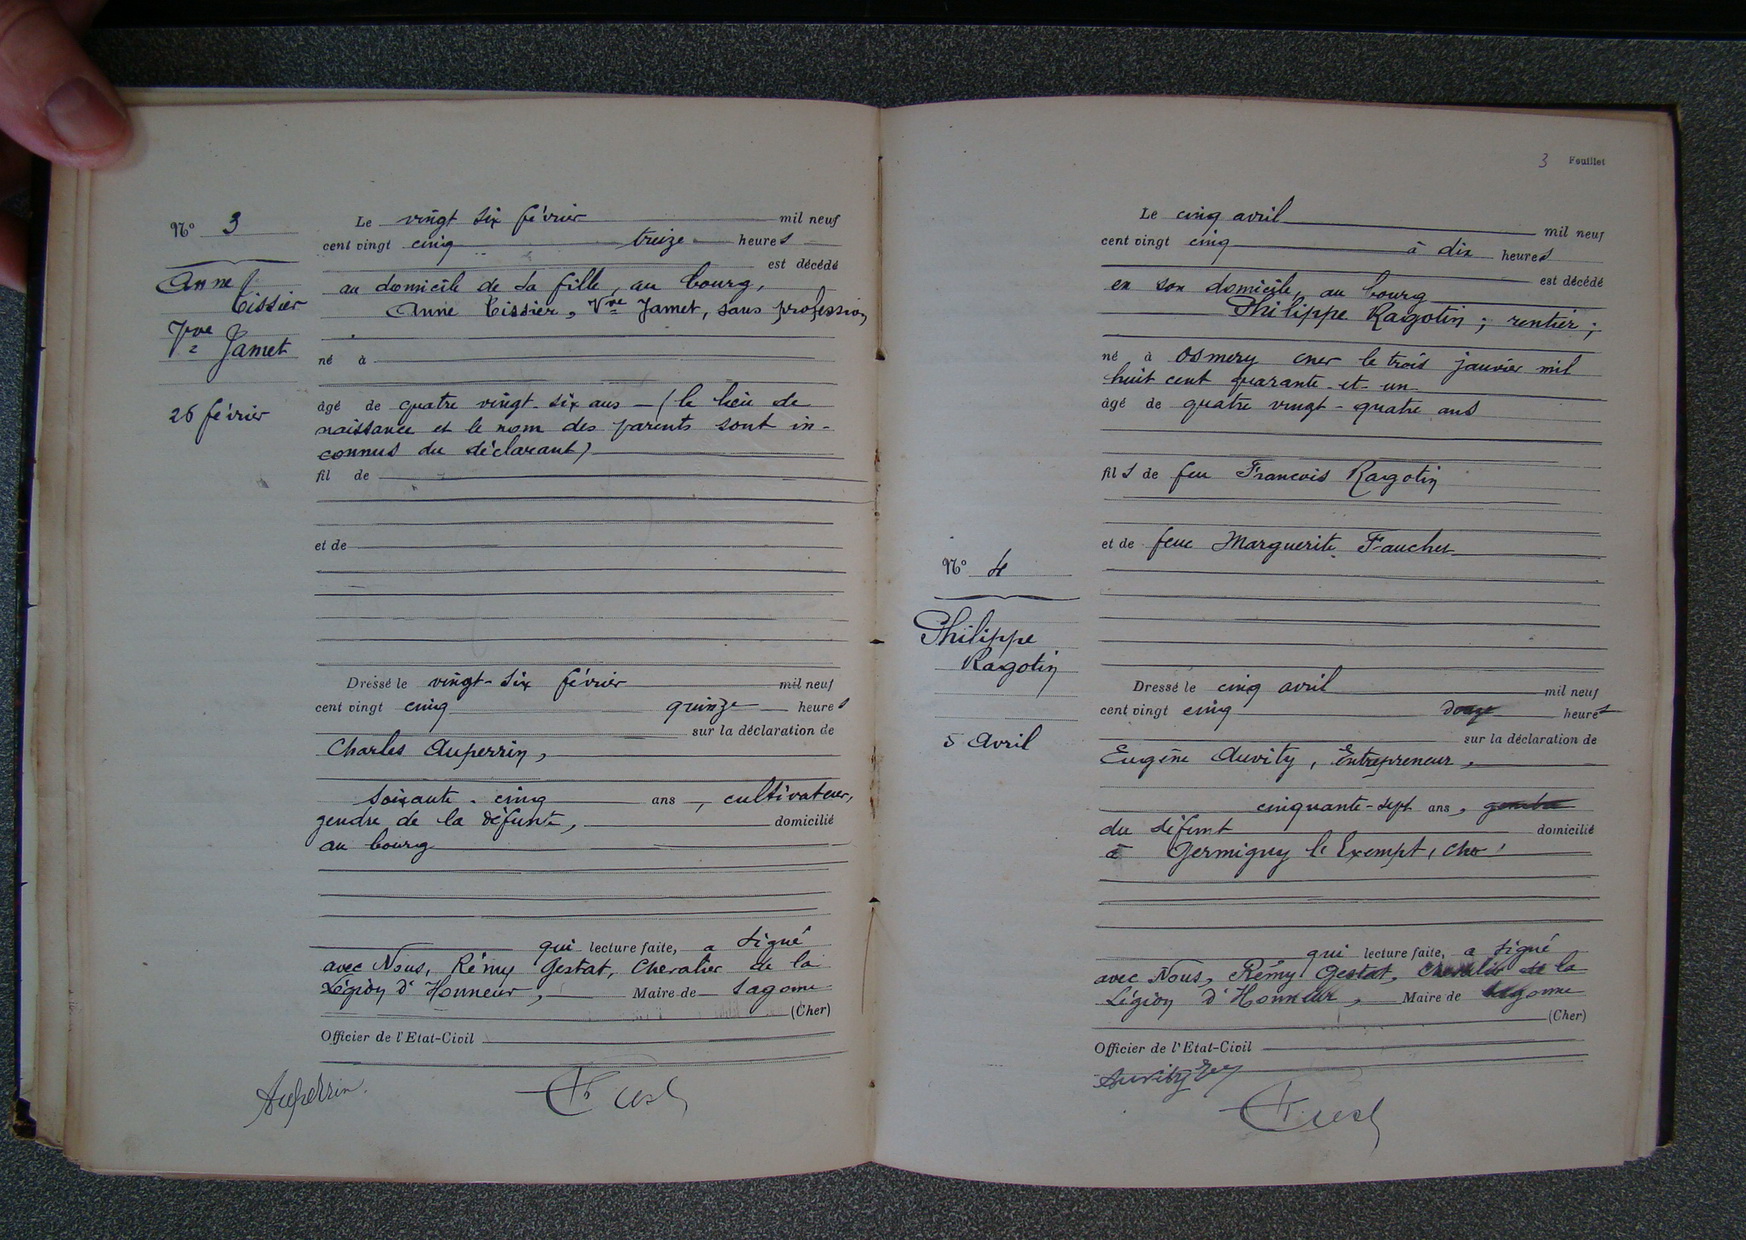 N° 3
Anne
Tissier
Vve Jamet
26 février
Le vingt six février mil neuf
cent vingt cinq treize heures
est décédé
au domicile de sa fille, au bourg,
Anne Tissier, Vve Jamet, sans profession
né à
âgé de quatre vingt-six ans - (le lieu de
naissance et le nom des parents sont in-
connus du déclarant)
fil de
et de
Dressé le vingt-six février mil neuf
cent vingt cinq quinze heures
sur la déclaration de
Charles Auperrin,
soixante-cinq ans, cultivateur,
gendre de la défunte, domicilié
au bourg
qui lecture faite, a signé
avec Nous, Rémy Gestat, Chevalier de la
Légion d'Honneur, Maire de Sagonne
(Cher)
Officier de l'Etat-Civil
Auperrin
3 Feuillet
N° 4
Philippe
Ragotin
5 Avril
Le cinq avril mil neuf
cent vingt cinq à dix heures
est décédé
en son domicile, au bourg
Philippe Ragotin ; rentier ;
né à Osmery Cher le trois janvier mil
huit cent quarante-et-un
âgé de quatre vingt-quatre ans
fils de feu Francois Ragotin
et de feue Marguerite Faucher
Dressé le cinq avril mil neuf
cent vingt cinq douze heures
sur la déclaration de
Eugène Auvity, Entrepreneur,
cinquante-sept ans, gendre
du défunt domicilié
à Germigny l'Exempt, Cher
qui lecture faite, a signé
avec Nous, Rémy Gestat, Chevalier de la
Légion d'Honneur, Maire de Sagonne
(Cher)
Officier de l'Etat-Civil
Auvity